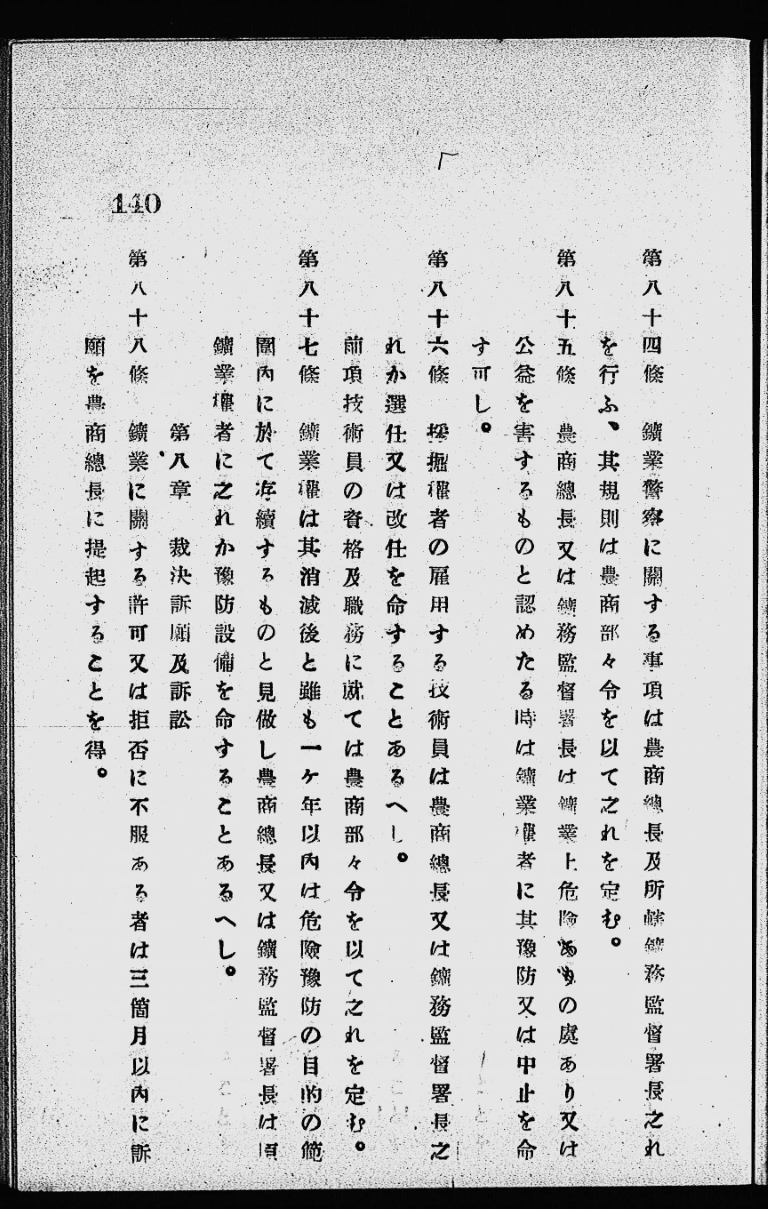 140
第八十四條　鑛業警察に關する事項は農商總長及所轄鑛務監督署長之れ
を行ふ、其規則は農商部々令を以て之れを定む。
第八十五條　農商總長又は鑛務監督署長は鑛業上危險あるの處あり又は
公益を害するものと認めたる時は鑛業權者に其豫防又は中止を命
す可し。
第八十六條　採掘權者の雇用する技術員は農商總長又は鑛務監督署長之
れか選任又は改任を命することあるへし。
前項技術員の資格及職務に就ては農商部々令を以て之れを定む。
第八十七條　鑛業權は其消滅後と雖も一ケ年以內は危險豫防の目的の範
圍內に於て存續するものと見做し農商總長又は鑛務監督署長は原
鑛業權者に之れか豫防設備を命することあるへし。
第八章　裁決訴願及訴訟
第八十八條　鑛業に關する許可又は拒否に不服ある者は三箇月以內に訴
願を農商總長に提起することを得。